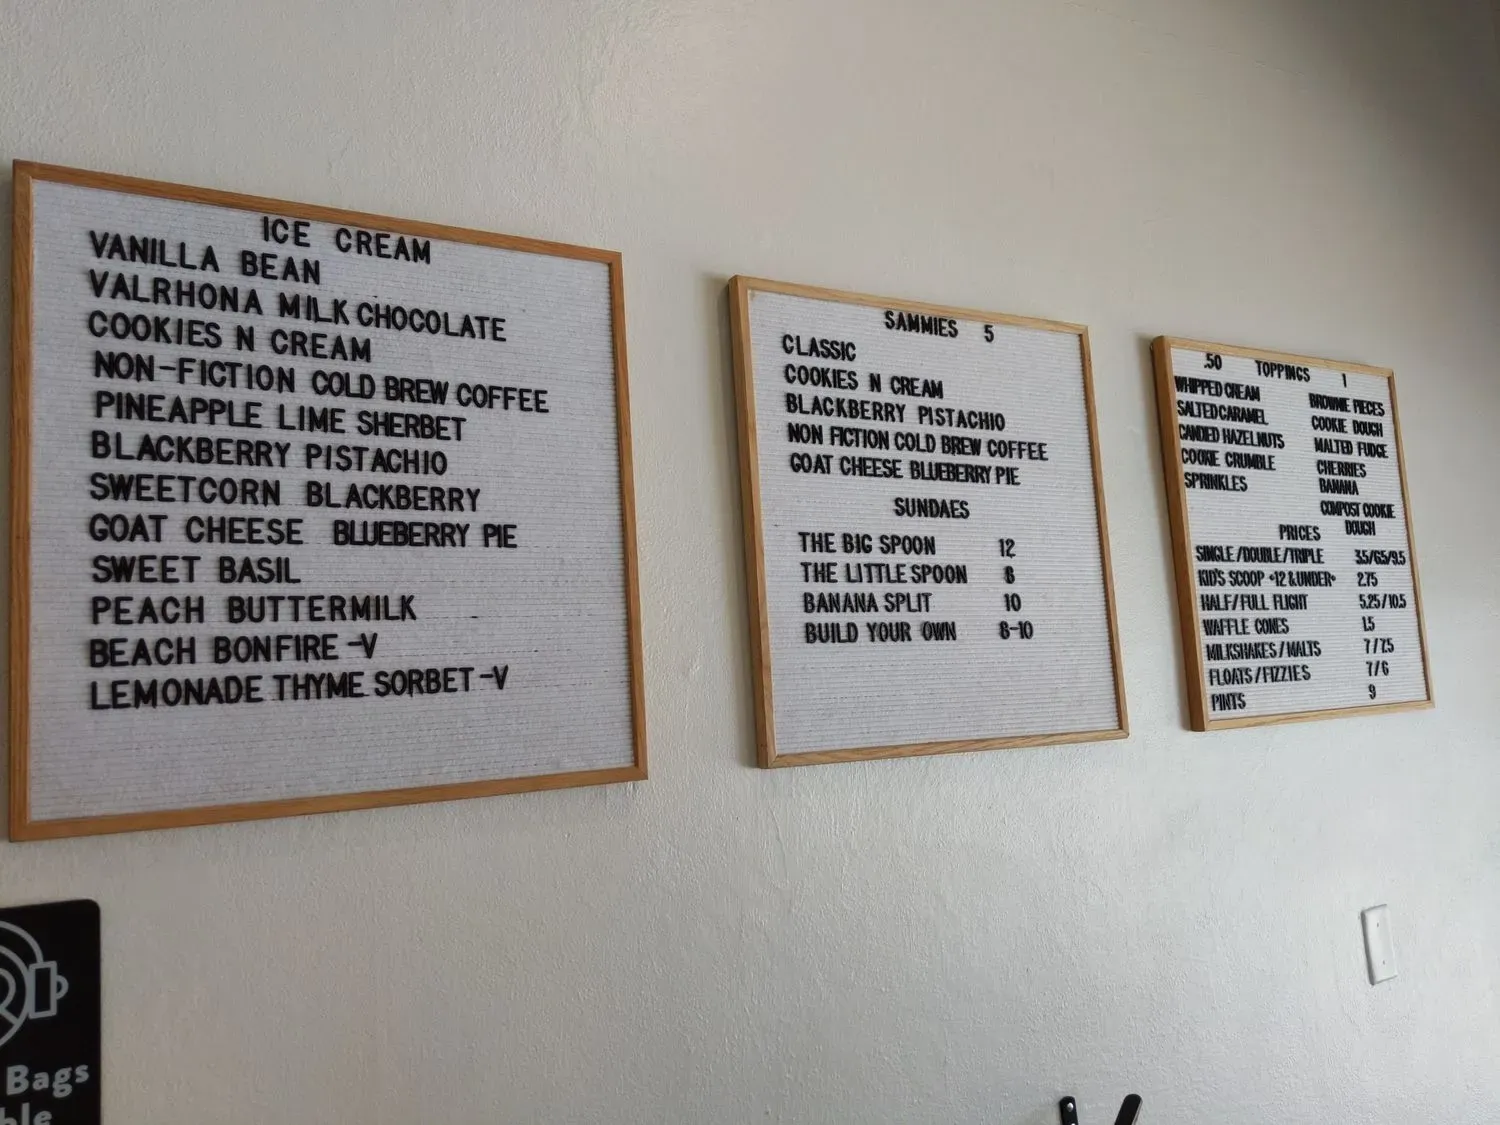 ICE CREAM
VANILLA BEAN
VALRHONA MILK CHOCOLATE
COOKIES N CREAM
NON-FICTION COLD BREW COFFEE
PINEAPPLE LIME SHERBET
BLACKBERRY PISTACHIO
SWEETCORN BLACKBERRY
GOAT CHEESE BLUEBERRY PIE
SWEET BASIL
PEACH BUTTERMILK
BEACH BONFIRE -V
LEMONADE THYME SORBET -V
SAMMIES 5
CLASSIC
COOKIES N CREAM
BLACKBERRY PISTACHIO
NON FICTION COLD BREW COFFEE
GOAT CHEESE BLUEBERRY PIE
SUNDAES
THE BIG SPOON 12
THE LITTLE SPOON 8
BANANA SPLIT 10
BUILD YOUR OWN 8-10
.50 TOPPINGS 1
WHIPPED CREAM BROWNIE PIECES
SALTED CARAMEL COOKIE DOUGH
CANDIED HAZELNUTS MALTED FUDGE
COOKIE CRUMBLE CHERRIES
SPRINKLES BANANA
COMPOST COOKIE
DOUGH
PRICES
SINGLE/DOUBLE/TRIPLE 3.5/6.5/9.5
KID'S SCOOP *12 & UNDER* 2.75
HALF/FULL FLIGHT 5.25/10.5
WAFFLE CONES 1.5
MILKSHAKES/MALTS 7/7.5
FLOATS/FIZZIES 7/6
PINTS 9
Bags